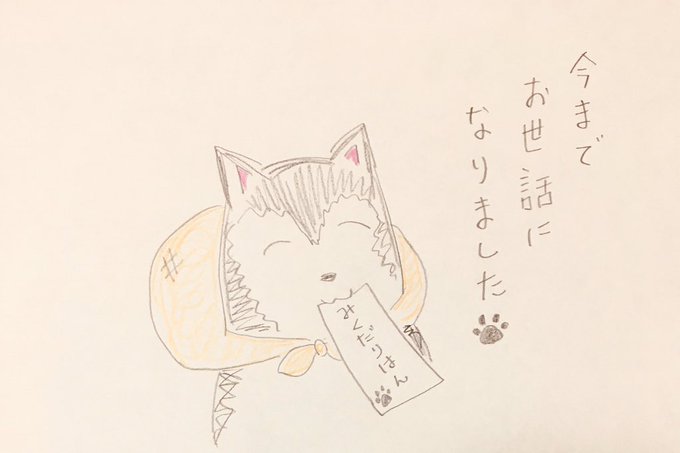 今まで
お世話に
なりました
みくだりはん